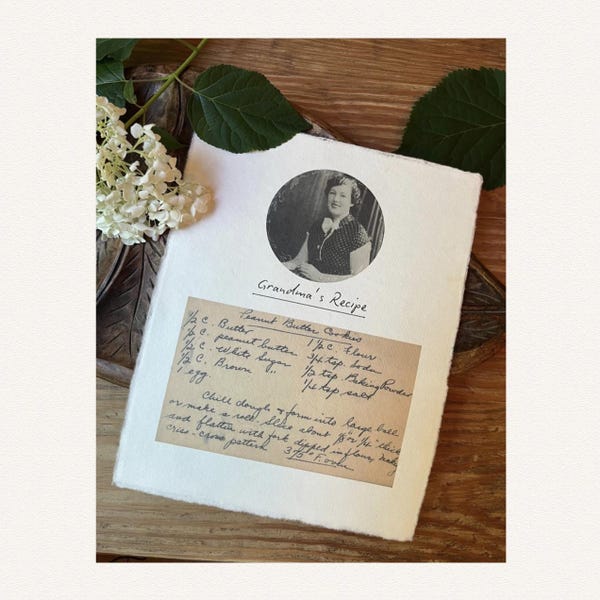 Grandma's Recipe
Peanut Butter Cookies
1/2 C. Butter 1 1/2 C. Flour
1/2 C. peanut butter 3/4 tsp. Soda
1/2 C. White Sugar 1/2 tsp Baking Powder
1/2 C. Brown " 1/4 tsp salt
1 egg.
Chill dough & form into large ball
or make a roll. Slice about 1/8" or 1/4" thick
and flatten with fork dipped in flour, making
criss-cross pattern. 375° F. oven